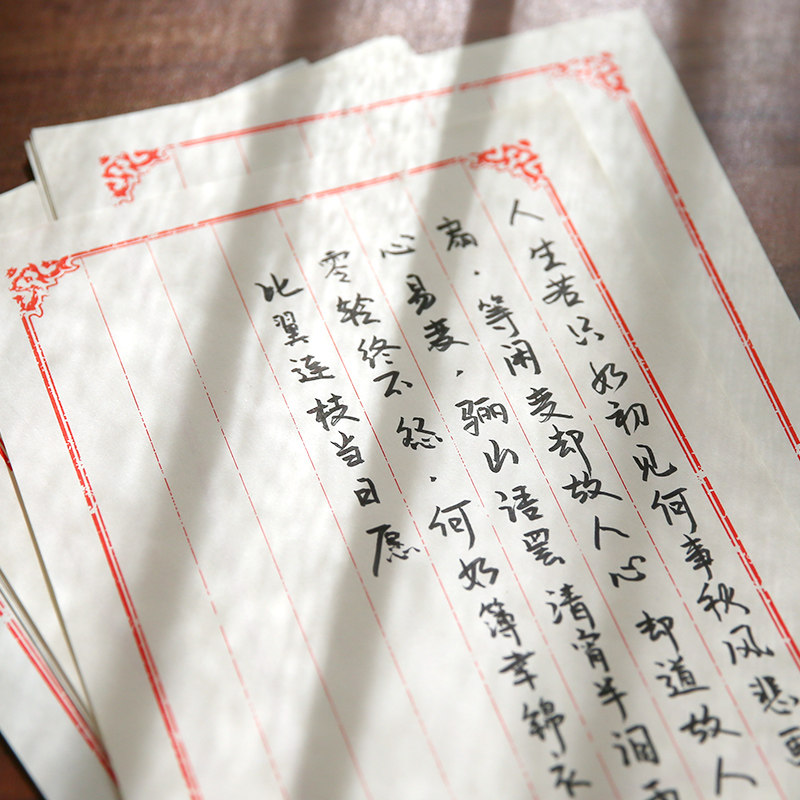 人生若只如初见何事秋风悲画
扇，等闲变却故人心却道故人
心易变，骊山语罢清宵半泪雨
零铃终不怨，何如簿幸锦衣
比翼连枝当日愿